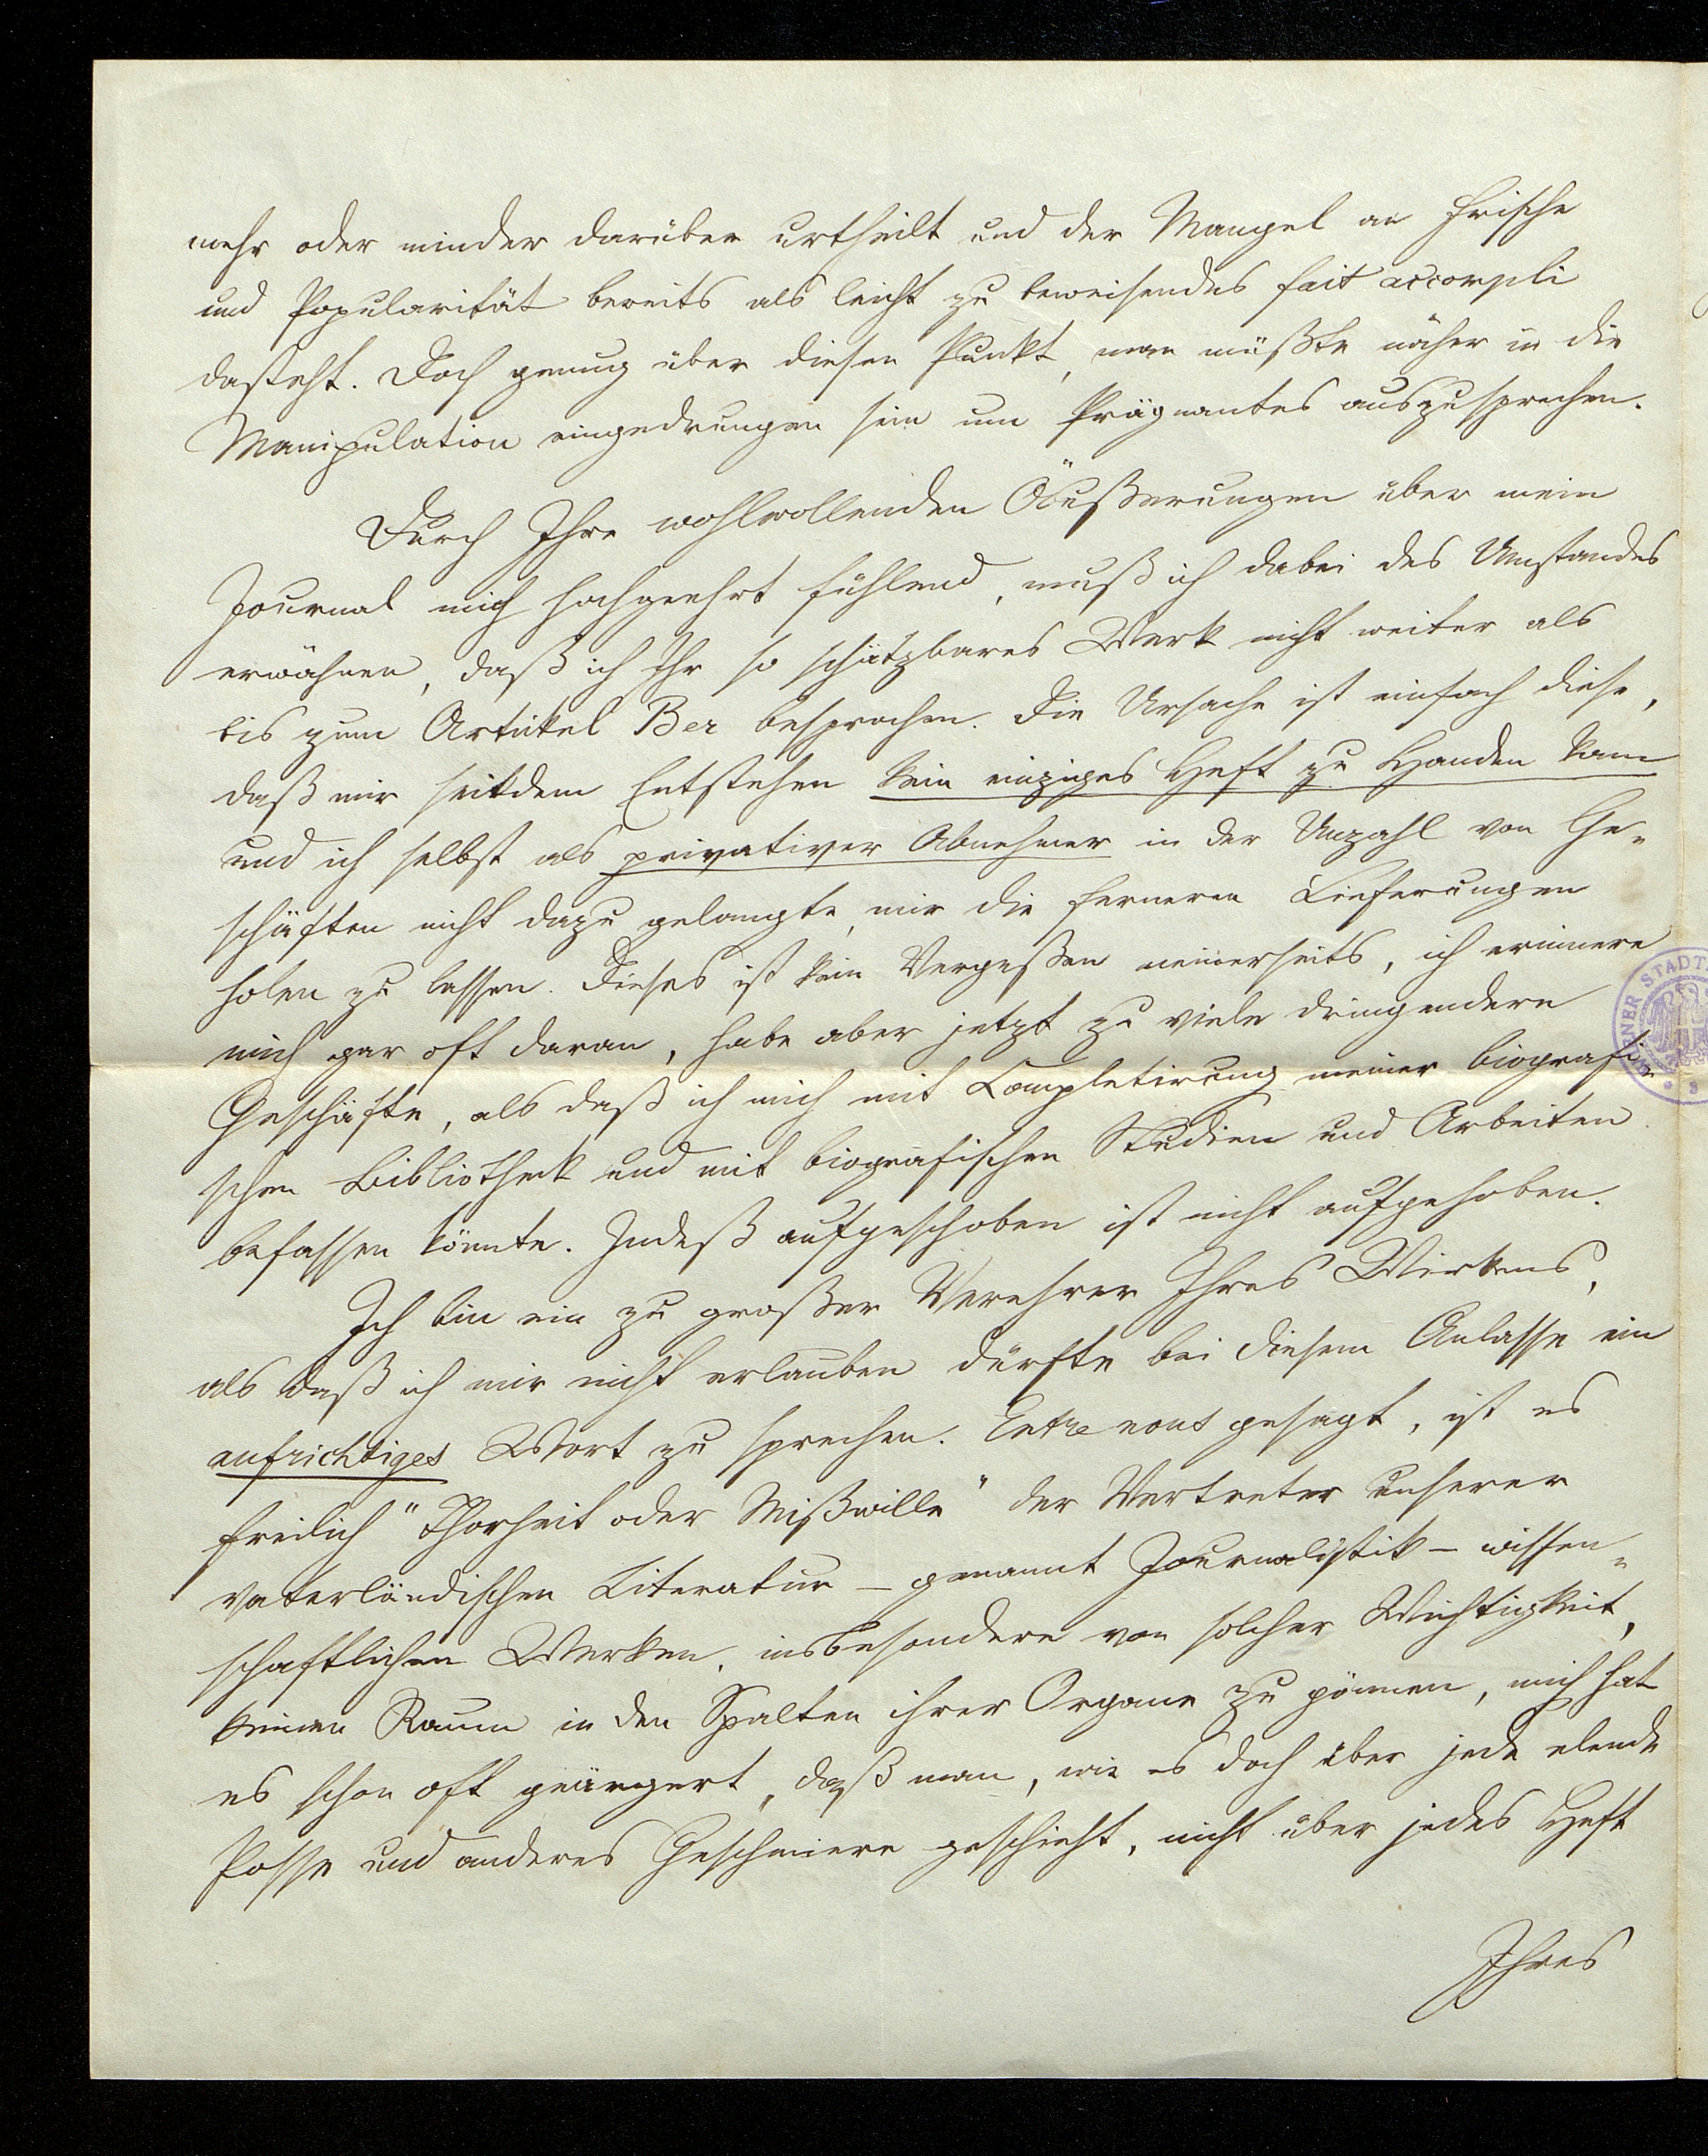 mehr oder minder darüber urtheilt und der Mangel an Frische
und Popularität bereits als leicht zu beweisendes fait accompli
dasteht. Doch genug über diesen Punkt, man müßte näher in die
Manipulation eingedrungen sein um Prägnantes auszusprechen.
Durch Ihre wohlwollenden Äußerungen über mein
Journal mich hochgeehrt fühlend, muß ich dabei des Umstandes
erwähnen, daß ich Ihr so schätzbares Werk nicht weiter als
bis zum Artikel Ber besprochen. Die Ursache ist einfach diese,
daß mir seitdem Entstehen kein einziges Heft zu Handen kam
und ich selbst als privativer Abnehmer in der Unzahl von Ge-
schäften nicht dazu gelangte, mir die ferneren Lieferungen
holen zu lassen. Dieses ist kein Vergeßen meinerseits, ich erinnere
mich gar oft daran, habe aber jetzt zu viele dringendere
Geschäfte, als daß ich mich mit Completirung meiner biografi-
schen Bibliothek und mit biografischen Studien und Arbeiten
befassen könnte. Indeß aufgeschoben ist nicht aufgehoben.
Ich bin ein zu großer Verehrer Ihres Wirkens,
als daß ich mir nicht erlauben dürfte bei diesem Anlasse ein
aufrichtiges Wort zu sprechen. Entre nous gesagt, ist es
freilich "Thorheit oder Mißwille" der Vertreter unserer
vaterländischen Literatur – genannt Journalistik – wissen-
schaftlichen Werken, insbesondere von solcher Wichtigkeit,
keinen Raum in den Spalten ihrer Organe zu gönnen, mich hat
es schon oft geärgert, daß man, wie es doch über jede elende
Posse und anderes Geschmiere geschieht, nicht über jedes Heft
Ihres
STADT